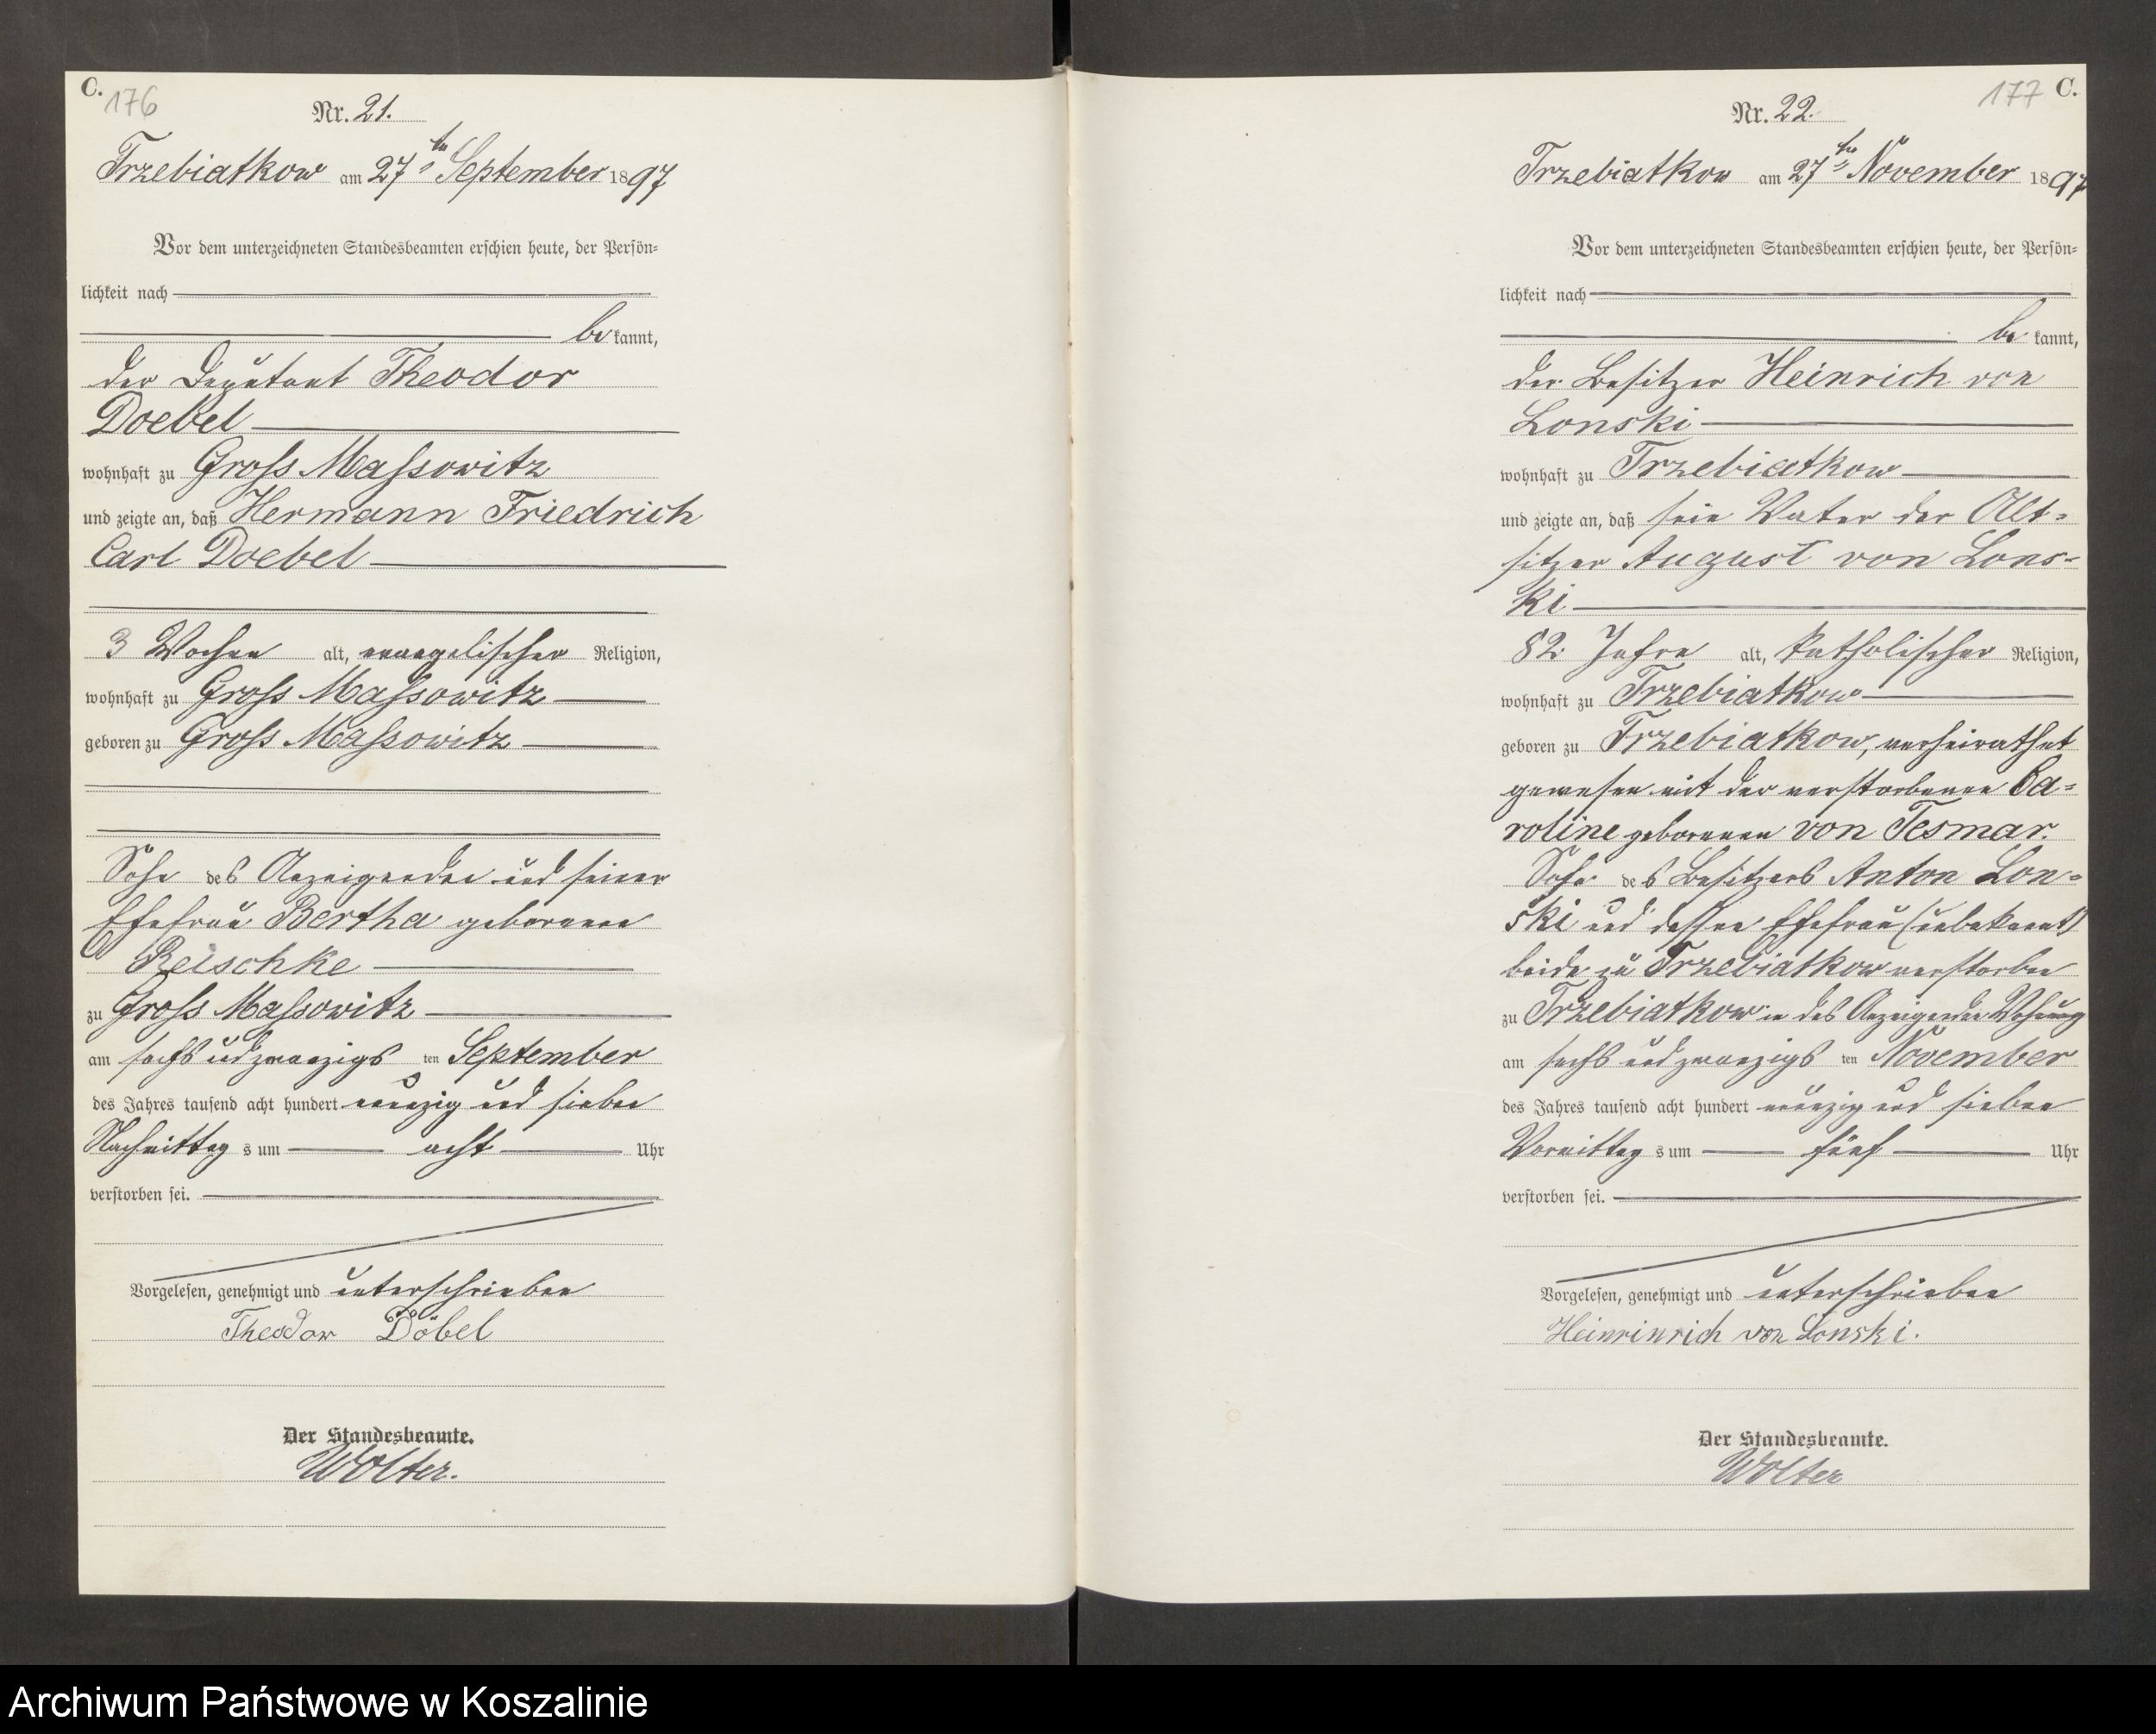 C.
176
Nr. 21.
Trzebiatkow am 27ten September 1897
Vor dem unterzeichneten Standesbeamten erschien heute, der Persön-
lichkeit nach
be kannt,
der Deputant Theodor
Doebel
wohnhaft zu Gross Massowitz
und zeigte an, daß Hermann Friedrich
Carl Doebel
3 Wochen alt, evangelischer Religion,
wohnhaft zu Gross Massowitz
geboren zu Gross Massowitz
Sohn des Anzeigenden und seiner
Ehefrau Bertha geborenen
Reischke
zu Gross Massowitz
am sechs und zwanzigs ten September
des Jahres tausend acht hundert neunzig und sieben
Nachmittag s um acht Uhr
verstorben sei.
Vorgelesen, genehmigt und unterschrieben
Theodor Döbel
Der Standesbeamte.
Wolter.
177 C.
Nr. 22.
Trzebiatkow am 27ten November 1897
Vor dem unterzeichneten Standesbeamten erschien heute, der Persön-
lichkeit nach
be kannt,
der Besitzer Heinrich von
Lonski
wohnhaft zu Trzebiatkow
und zeigte an, daß sein Vater der Alt-
sitzer August von Lons-
ki
82 Jahre alt, katholischer Religion,
wohnhaft zu Trzebiatkow
geboren zu Trzebiatkow, verheirathet
gewesen mit der verstorbenen Ca-
roline geborenen von Tesmar.
Sohn des Besitzers Anton Lon-
ski und dessen Ehefrau (unbekannt)
beide zu Trzebiatkow verstorben
zu Trzebiatkow in des Anzeigenden Wohnung
am sechs und zwanzigs ten November
des Jahres tausend acht hundert neunzig und sieben
Vormittag s um fünf Uhr
verstorben sei.
Vorgelesen, genehmigt und unterschrieben
Heinrinrich von Lonski.
Der Standesbeamte.
Wolter
Archiwum Państwowe w Koszalinie